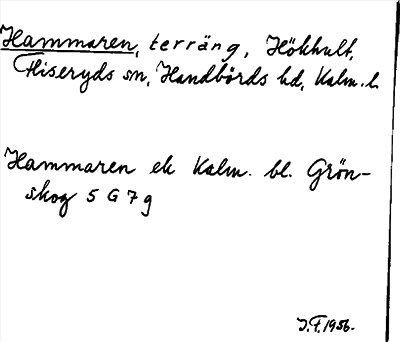 Hammaren, terräng, Hökhult,
Fliseryds sn, Handbörds hd, Kalm. l.
Hammaren ek Kalm. bl. Grön-
skog 5 G 7 g
J.F. 1956.